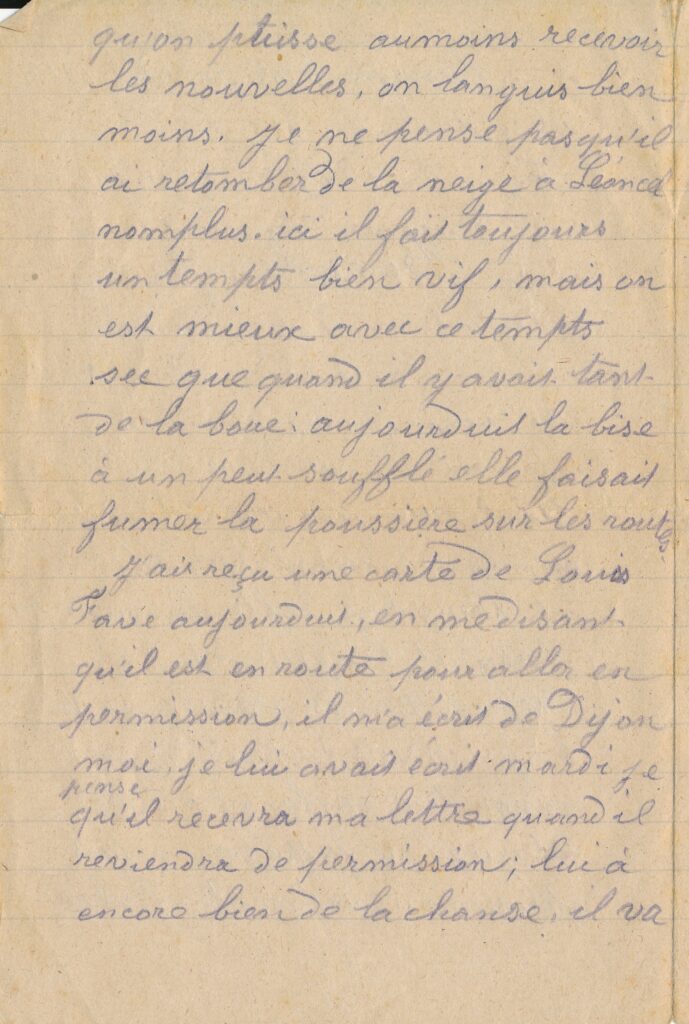 qu'on puisse aumoins recevoir
les nouvelles, on languis bien
moins. Je ne pense pasqu'il
ai retomber de la neige à Léoncel
nomplus. ici il fait toujours
un tempts bien vif, mais on
est mieux avec ce tempts
sec que quand il y avait tant
de la boue: aujourduit la bise
à un peut soufflé elle faisait
fumer la poussière sur les routes.
J'ais reçu une carte de Louis
Fave aujourduit, en medisant
qu'il est en route pour aller en
permission, il m'a écrit de Dijon
moi, je lui avait écrit mardi je
pense
qu'il recevra ma lettre quand il
reviendra de permission; lui à
encore bien de la chanse, il va